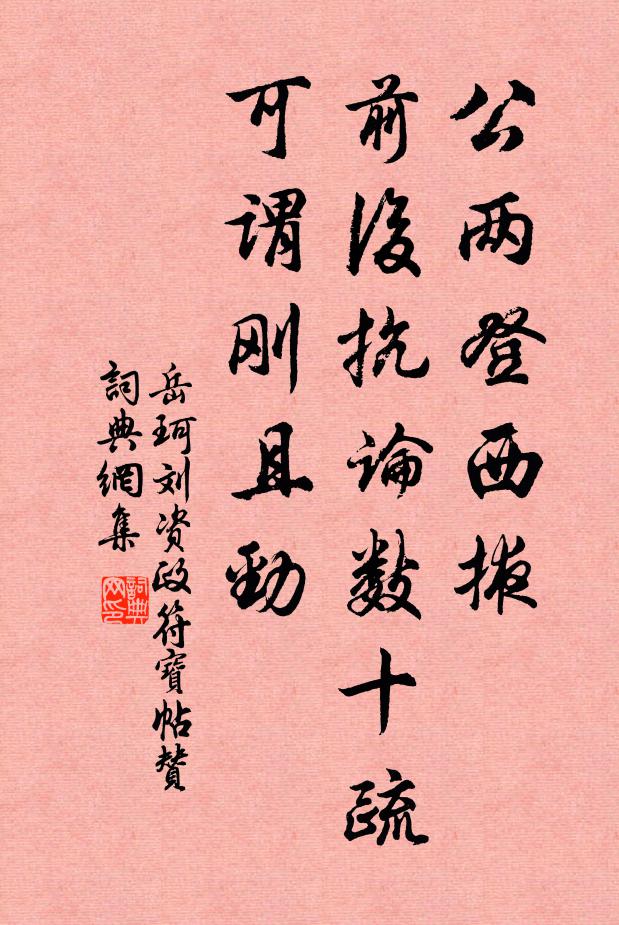 公两登西掖
前後抗论数十疏
可谓刚且劲
岳珂刘资政符寶帖赞
詞典網集
詞典網印